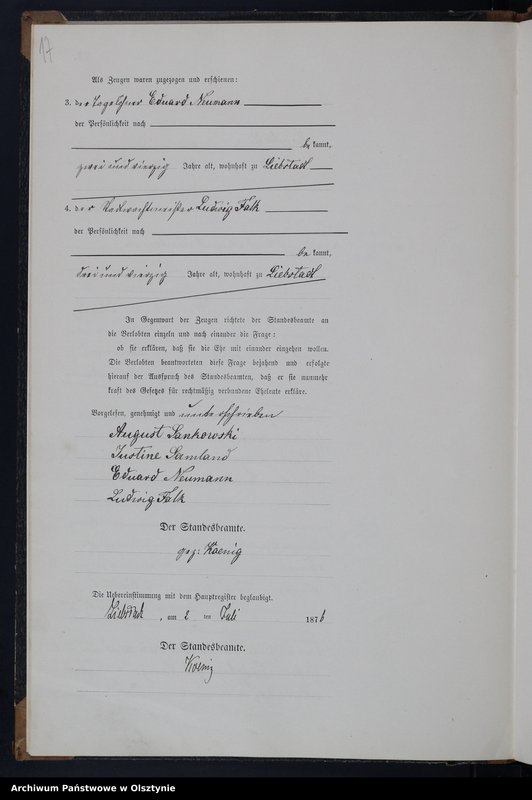 17
Als Zeugen waren zugezogen und erschienen:
3. der Tagelöhner Eduard Neumann
der Persönlichkeit nach
be kannt,
zwei und vierzig Jahre alt, wohnhaft zu Liebstadt
4. der Stadtwachtmeister Ludwig Falk
der Persönlichkeit nach
be kannt,
drei und vierzig Jahre alt, wohnhaft zu Liebstadt
In Gegenwart der Zeugen richtete der Standesbeamte an
die Verlobten einzeln und nach einander die Frage:
ob sie erklären, daß sie die Ehe mit einander eingehen wollen.
Die Verlobten beantworteten diese Frage bejahend und erfolgte
hierauf der Ausspruch des Standesbeamten, daß er sie nunmehr
kraft des Gesetzes für rechtmäßig verbundene Eheleute erkläre.
Vorgelesen, genehmigt und unterschrieben
August Sankowski
Justine Samland
Eduard Neumann
Ludwig Falk
Der Standesbeamte.
gez: Koenig
Die Uebereinstimmung mit dem Hauptregister beglaubigt.
Liebstadt, am 2 ten Juli 1876
Der Standesbeamte.
Koenig
Archiwum Państwowe w Olsztynie